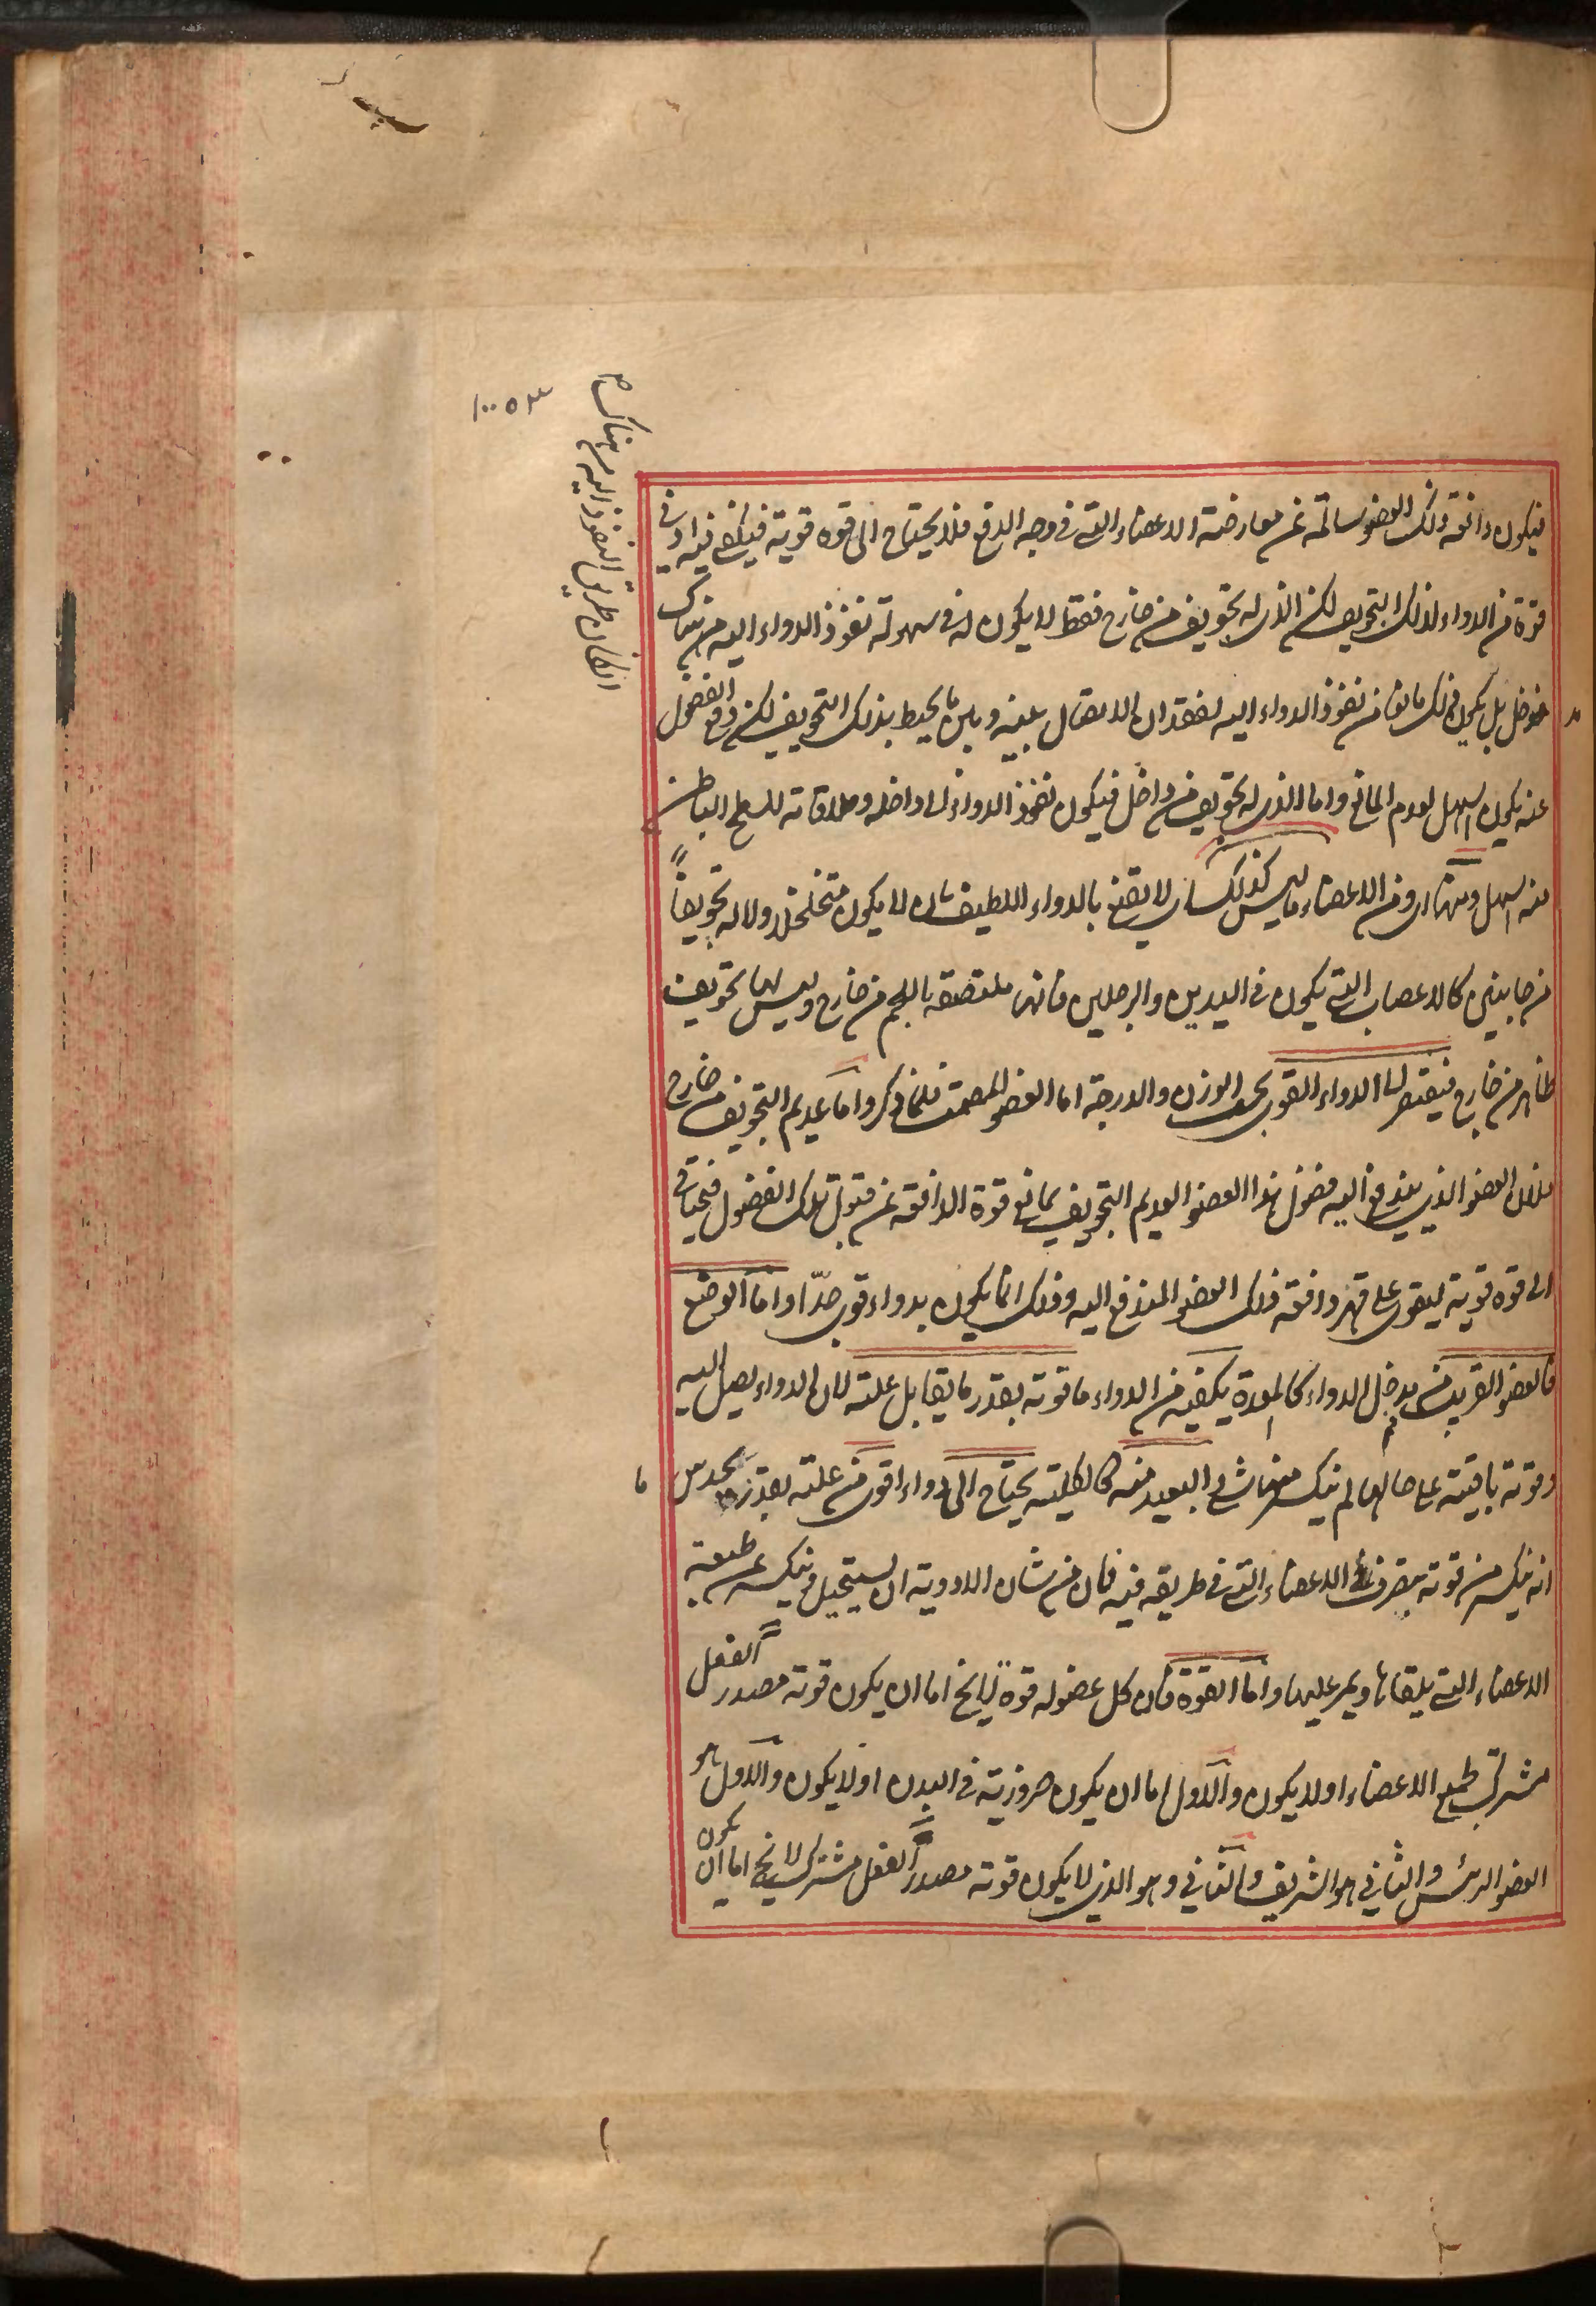 فيكون دافعة ذلك العضو سالمة عن معارضة الاعضاء التى فى وجه الدفع فلا يحتاج الى قوة قوية فيكفى فيه ادنى
قوة من الدواء لذلك التجويف لكن الذى له تجويف من خارج فقط لا يكون له فى سهولة نفوذ الدواء اليه من هناك
مدخل بل يكون ذلك مانعا من نفوذ الدواء اليه لفقدان الاتصال بينه وبين ما يحيط بذلك التجويف لكن دفع الفضول
عنه يكون اسهل لعدم المانع واما الذى له تجويف من داخل فيكون نفوذ الدواء الى داخله وملاقاته للسطح الباطن
منه اسهل ومنها اى ومن الاعضاء ما ليس كذلك اى لا يقنع بالدواء اللطيف بان لا يكون متخلخلا ولا له تجويف
من جانبين كالاعصاب التى يكون فى اليدين والرجلين فانها ملتصقة باللحم من خارج وليس لها تجويف
ظاهر من خارج فيفتقر الى الدواء القوى بحسب الوزن والدرجة اما العضو المصمت فلما ذكروا ما عديم التجويف من خارج
فلان العضو الذى يندفع اليه فضول هذا العضو العديم التجويف يمانع قوة الدافعة عن قبول تلك الفضول فيحتاج
الى قوة قوية ليقوى على قهر دافعة ذلك العضو المندفع اليه وذلك انما يكون بدواء قوى جدّا واما الوضع
فالعضو القريب من مدخل الدواء كالمعدة يكفيه من الدواء ما قوته بقدر ما يقابل علته لان الدواء يصل اليه
وقوته باقية على حالها لم ينكسر منها شئ البعيد منه كالكلية يحتاج الى دواء اقوى من علته بقدر ما يحدس
انه ينكسر من قوته بتصرف الاعضاء التى فى طريقه فيه فان من شان الادوية ان يستحيل وينكسر عن طبيعة
الاعضاء التى يلقاها ويمر عليها واما القوة فان كل عضو له قوة لايخ اما ان يكون قوته مصدر الفعل
مشترك لجميع الاعضاء او لا يكون والاول اما ان يكون ضرورية فى البدن او لا يكون والاول هو
العضو الرئيس والثانى هو الشريف والثانى وهو الذى لا يكون قوته مصدر الفعل مشترك لايخ اما ان يكون